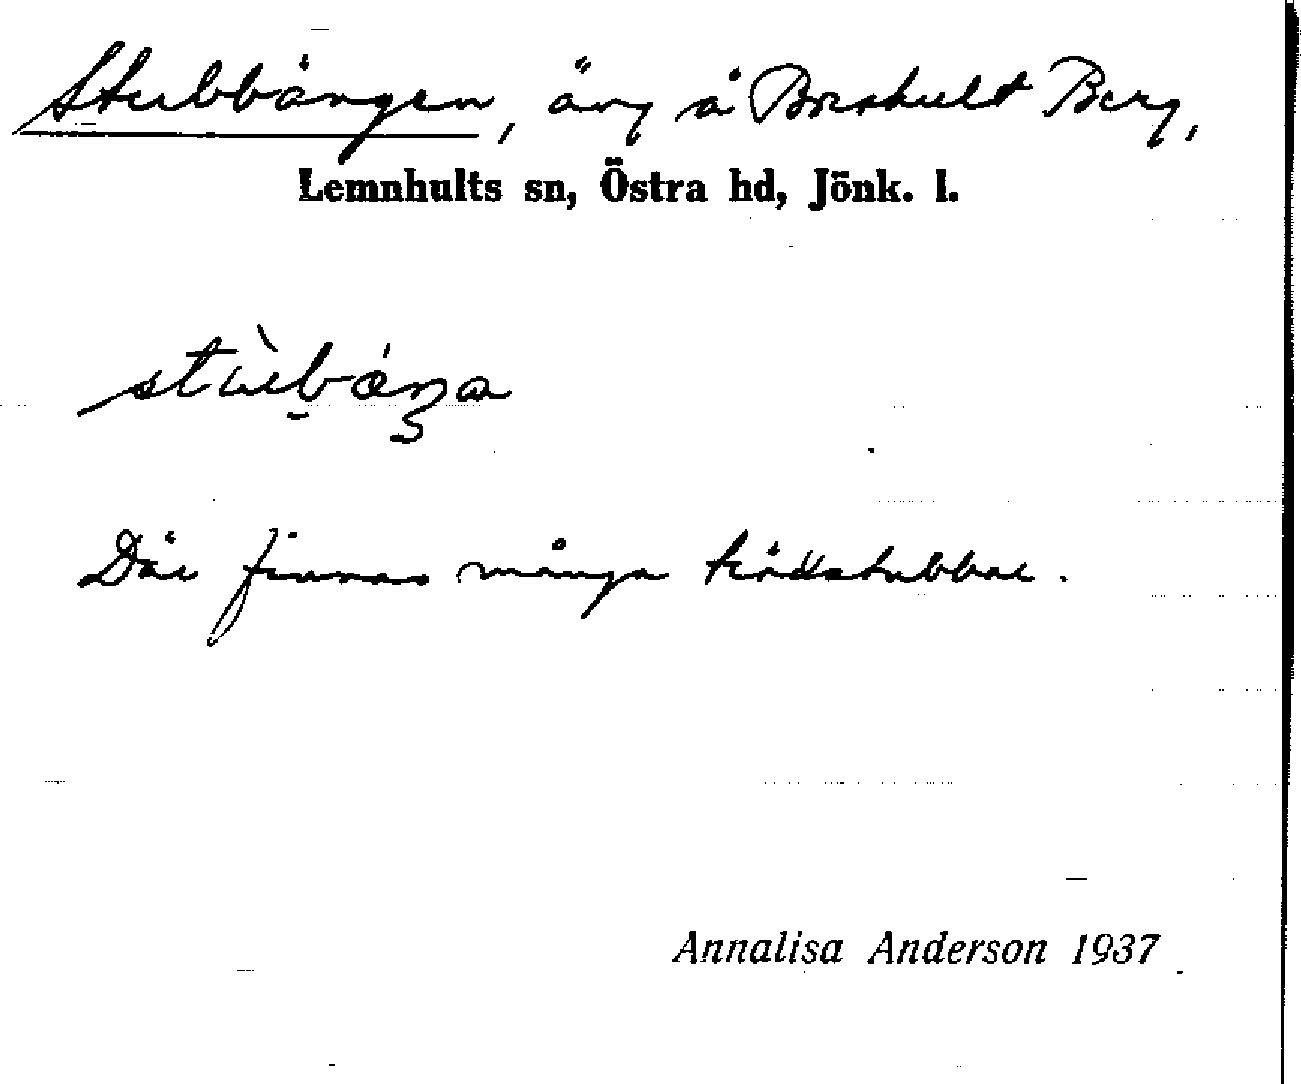 Stubbängen, äng å Boeshult Berg,
Lemnhults sn, Östra hd, Jönk. l.
Där finnas många trädstubbar.
Annalisa Anderson 1937